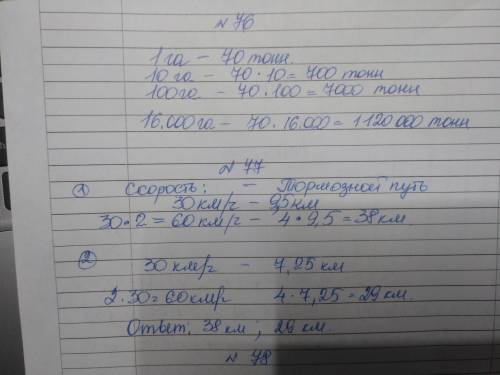 № 76
1 га – 70 тонн.
10 га – 70 · 10 = 700 тонн
100 га – 70 · 100 = 7000 тонн
16.000 га – 70 · 16.000 = 1120 000 тонн
№ 77
① Скорость: – Тормозной путь
30 км/г – 9,5 км
30 · 2 = 60 км/г – 4 · 9,5 = 38 км.
② 30 км/г – 7,25 км
2 · 30 = 60 км/г 4 · 7,25 = 29 км.
Ответ: 38 км ; 29 км.
№ 78